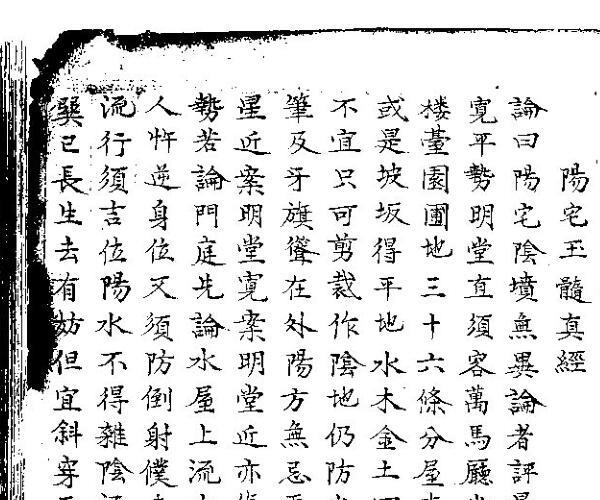 陽宅玉髓真經
論曰陽宅陰墳無異論者評
寬平勢明堂直須容萬馬廳
樓臺園圃地三十六條分屋
或是坡坂得平地水木金土
不宜只可剪裁作陰地仍防
筆及牙旗聳在外陽方無忌
星近案明堂寬案明堂近亦
勢若論門庭先論水屋上流
人忤逆身位又須防倒射僕
流行須吉位陽水不得雜陰
巽巳長生去有妨但宜斜穿